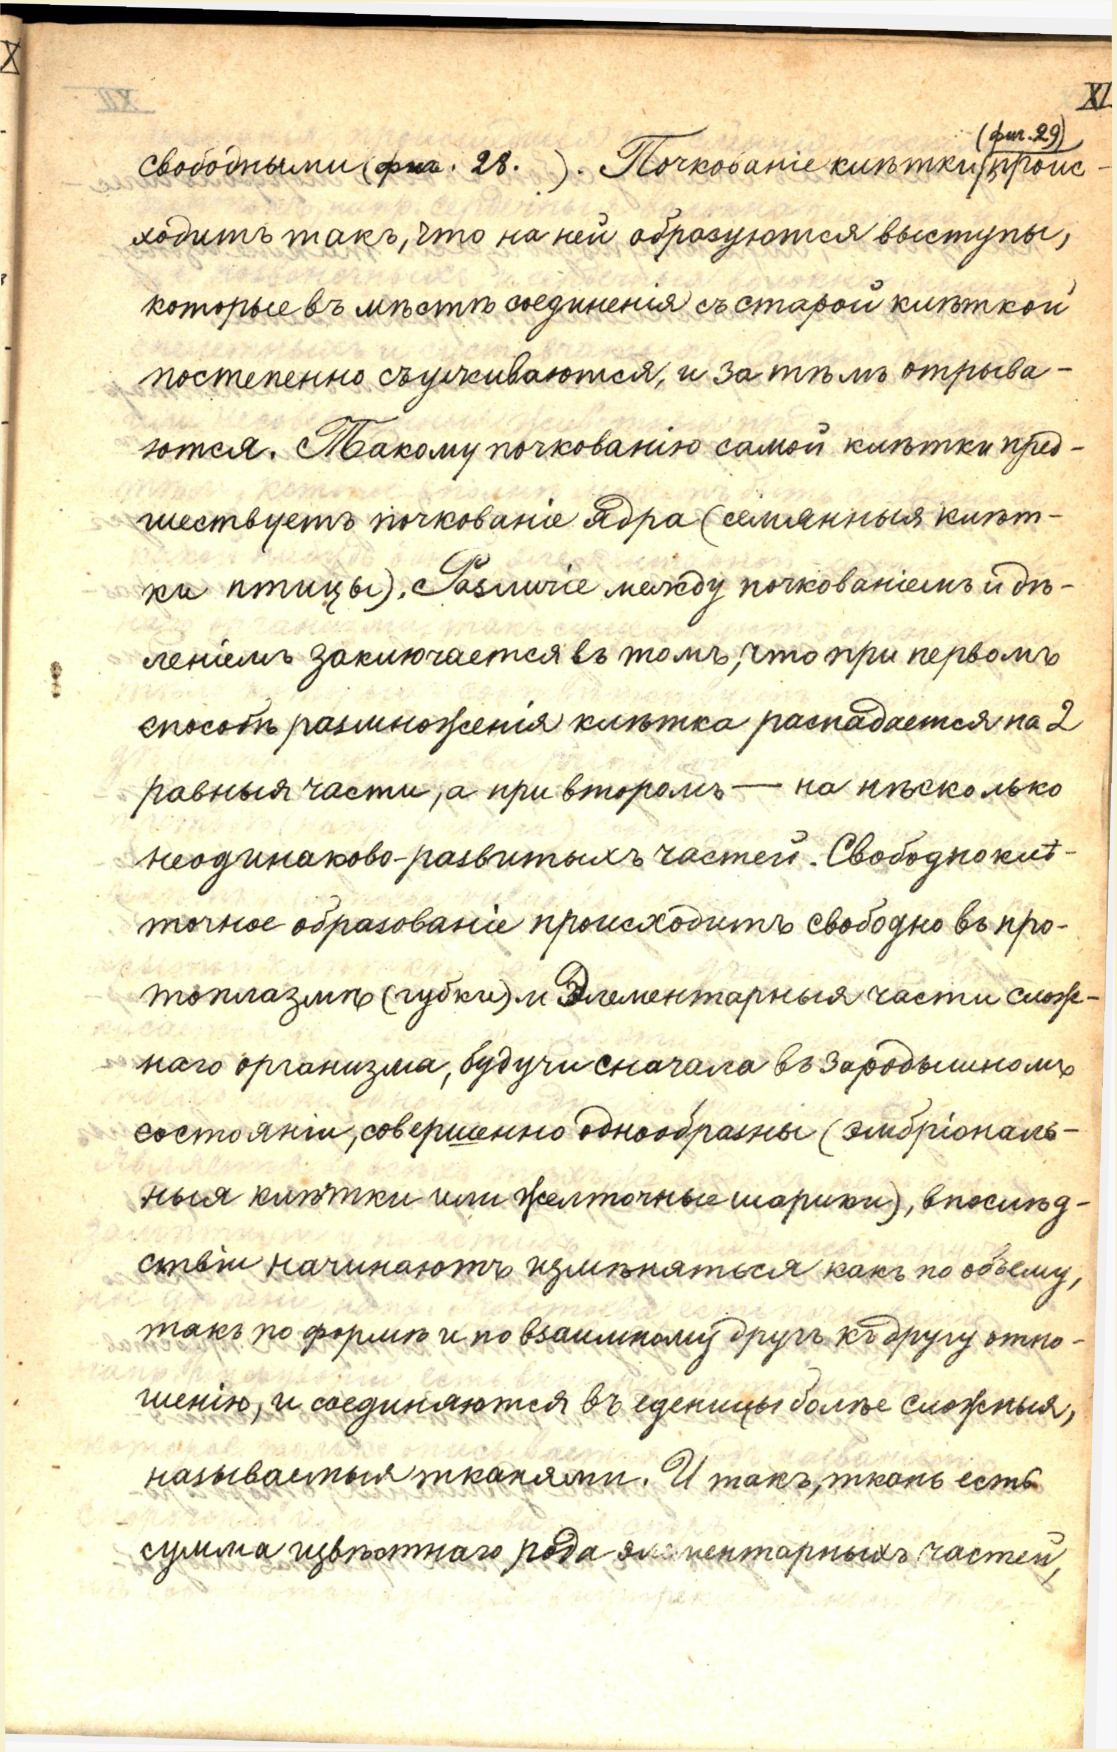 XI
(фиг. 29)
свободными (фиг. 28. ). Почкованіе клѣтки проис-
ходитъ такъ, что на ней образуются выступы,
которые въ мѣстѣ соединенія съ старой клѣткой
постепенно съуживаются, и за тѣмъ отрыва-
ются. Такому почкованію самой клѣтки пред-
шествуетъ почкованіе ядра (семянныя клѣт-
ки птицы). Различіе между почкованіемъ и дѣ-
леніемъ заключается въ томъ, что при первомъ
способѣ размноженія клѣтка распадается на 2
равныя части, а при второмъ — на нѣсколько
неодинаково-развитыхъ частей. Свободноклѣ-
точное образованіе происходитъ свободно въ про-
топлазмѣ (губки) и Элементарныя части слож-
наго организма, будучи сначала въ зародышномъ
состояніи, совершенно однообразны (эмбріональ-
ныя клѣтки или желточные шарики), впослѣд-
ствіи начинаютъ измѣняться какъ по объему,
такъ по формѣ и по взаимному другъ къ другу отно-
шенію, и соединяются въ еденицы болѣе сложныя,
называемыя тканями. И такъ, ткань есть
сумма извѣстнаго рода элементарныхъ частей,